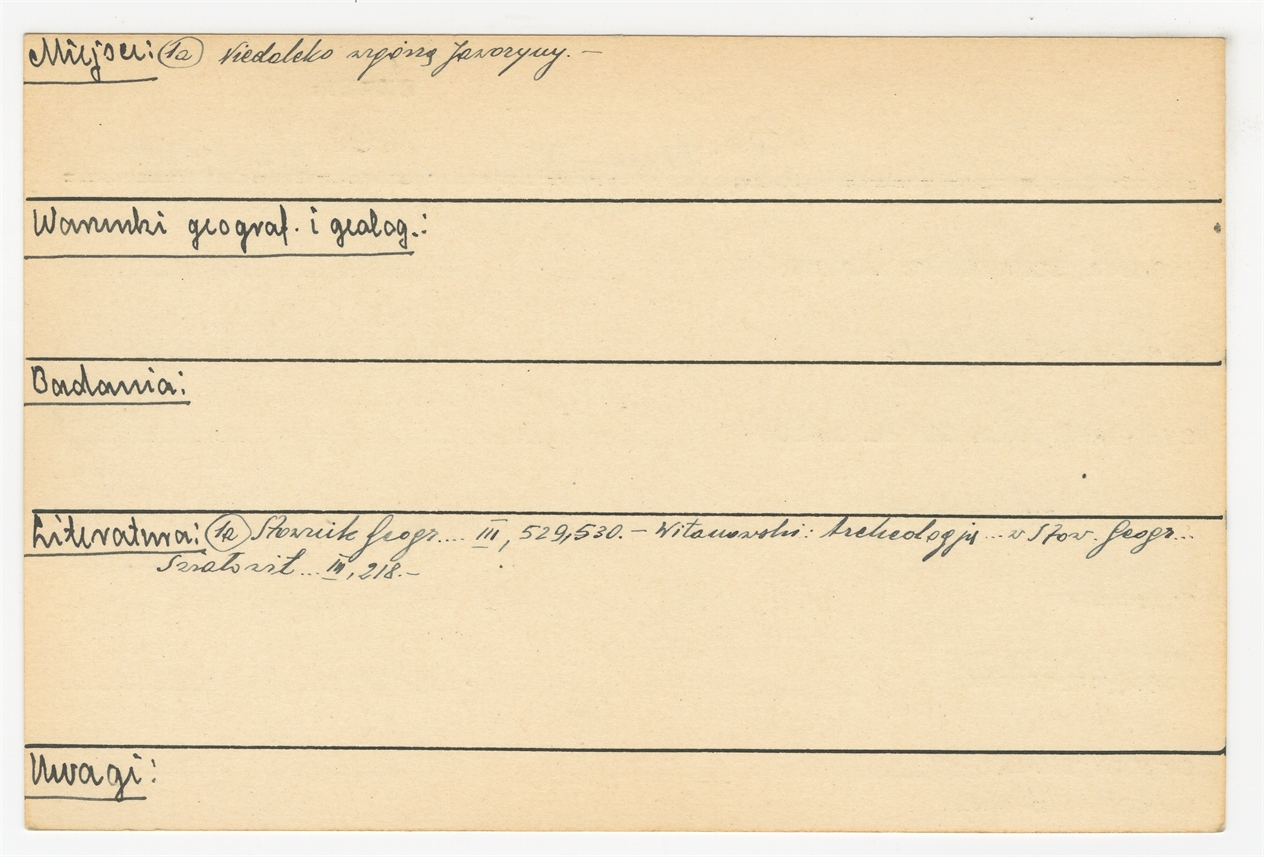 Miejsce: (1a) Niedaleko wzgórzą Jaworzyny. —
Warunki geograf. i geolog.:
Badania:
Literatura: (1a) Słownik Geogr.... III, 529,530. — Witanowski: Archeologja ... w Słow. Geogr...
Światowit ... III, 218. —
Uwagi: